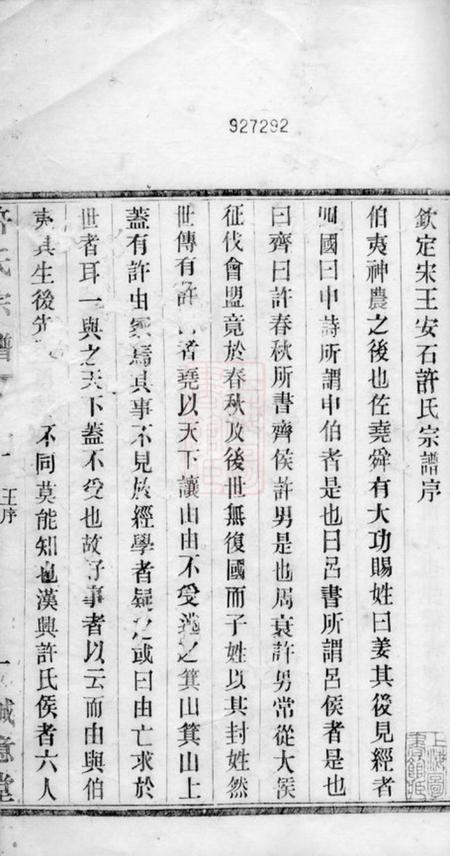 927292
欽定宋王安石許氏宗譜序
伯夷神農之後也佐堯舜有大功賜姓曰姜其後見經者
四國曰申詩所謂申伯者是也曰呂書所謂呂侯者是也
曰齊曰許春秋所書齊侯許男是也周衰許男常從大侯
征伐會盟竟於春秋及後世無復國而子姓以其封姓然
世傳有許由者堯以天下讓由由不受逃之箕山箕山上
蓋有許由冢焉其事不見於經學者疑之或曰由亡求於
世者耳一與之天下蓋不受也故好事者以云而由與伯
夷其生後先不同莫能知也漢興許氏侯者六人
許氏宗譜
王序
一
誠意堂
上海圖書館藏